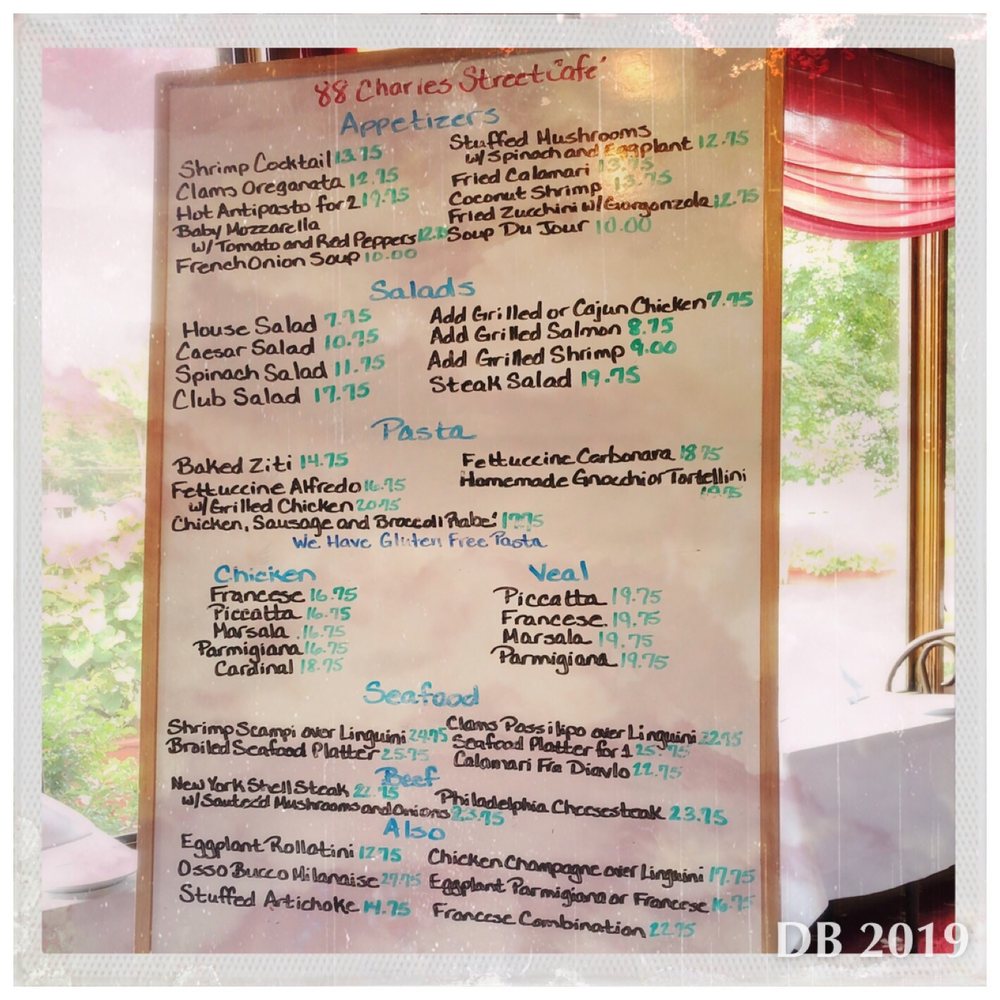 88 Charles Street Cafe'
Appetizers
Shrimp Cocktail 13.75
Clams Oreganata 12.75
Hot Antipasto for 2 19.75
Baby Mozzarella
w/ Tomato and Red Peppers
French Onion Soup 10.00
Stuffed Mushrooms
w/ Spinach and Eggplant 12.75
Fried Calamari 13.75
Coconut Shrimp 13.75
Fried Zucchini w/ Gorgonzola 12.75
Soup Du Jour 10.00
Salads
House Salad 7.75
Caesar Salad 10.75
Spinach Salad 11.75
Club Salad 17.75
Add Grilled or Cajun Chicken 7.75
Add Grilled Salmon 8.75
Add Grilled Shrimp 9.00
Steak Salad 19.75
Pasta
Baked Ziti 14.75
Fettuccine Alfredo 16.75
w/ Grilled Chicken 20.75
Chicken, Sausage and Broccoli Rabe' 17.75
Fettuccine Carbonara 18.75
Homemade Gnocchi or Tortellini
19.75
We Have Gluten Free Pasta
Chicken
Francese 16.75
Piccatta 16.75
Marsala 16.75
Parmigiana 16.75
Cardinal 18.75
Veal
Piccatta 19.75
Francese 19.75
Marsala 19.75
Parmigiana 19.75
Seafood
Shrimp Scampi over Linguini 24.75
Broiled Seafood Platter 25.75
Clams Possilipo over Linguini 22.75
Seafood Platter for 1 25.75
Calamari Fra Diavlo 22.75
Beef
New York Shell Steak 22.75
w/ Sauteéd Mushrooms and Onions 23.75
Philadelphia Cheesesteak 23.75
Also
Eggplant Rollatini 12.75
Osso Bucco Milanaise 27.75
Stuffed Artichoke 14.75
Chicken Champagne over Linguini 17.75
Eggplant Parmigiana or Francese 16.75
Francese Combination 22.75
DB 2019